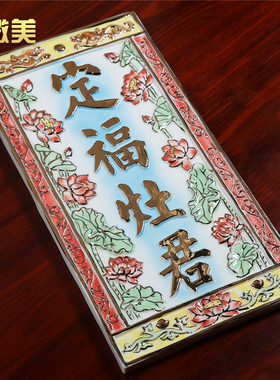 微美
定福灶君